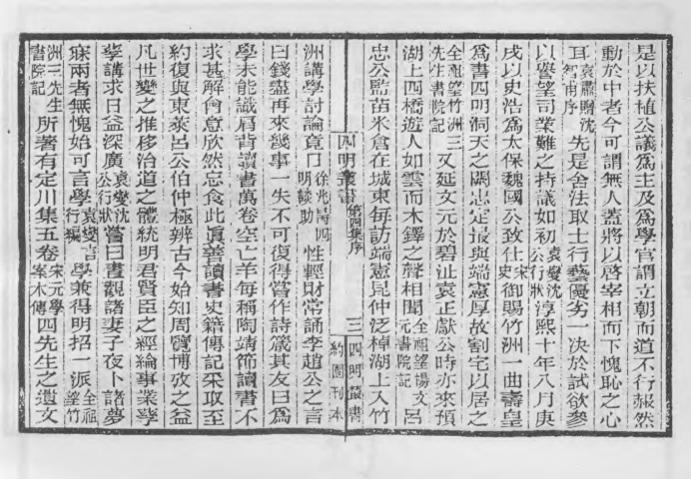 是以扶植公議爲主及爲學官謂立朝而道不行赧然
動於中者今可謂無人蓋將以啓宰相而下愧恥之心
耳袁肅贈沈智甫序先是舍法取士行藝優劣一决於試欲參
以譽望司業難之持議如初袁燮沈公行狀淳熙十年八月庚
戌以史浩爲太保魏國公致仕宋史御賜竹洲一曲壽皇
爲書四明洞天之闕忠定最與端憲厚故割宅以居之
全祖望竹洲三先生書院記又延文元於碧沚袁正獻公時亦來預
湖上四橋遊人如雲而木鐸之聲相聞全祖望楊文元書院記呂
忠公監苗米倉在城東每訪端憲昆仲泛棹湖上入竹
四明叢書 第四集序 三 四明叢書 約園刊本
洲講學討論竟日徐兆昺四明談助性輕財常誦李趙公之言
曰錢盡再來幾事一失不可復得嘗作詩箴其友曰爲
學未能識肩背讀書萬卷空亡羊每稱陶靖節讀書不
求甚解會意欣然忘食此眞善讀書史籍傳記采取至
約復與東萊呂公伯仲極辨古今始知周覽博攷之益
凡世變之推移治道之體統明君賢臣之經綸事業孳
孳講求日益深廣袁燮沈公行狀嘗曰晝觀諸妻子夜卜諸夢
寐兩者無愧始可言學袁燮言行編學兼得明招一派全祖望竹
洲三先生書院記所著有定川集五卷宋元學案本傳四先生之遺文